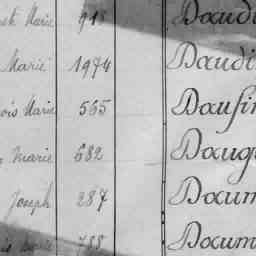 Marie 918 Daudi
Marie 1974 Daudi
ois Marie 565 Daufin
Marie 682 Daug
Joseph 287 Daum
788 Daum